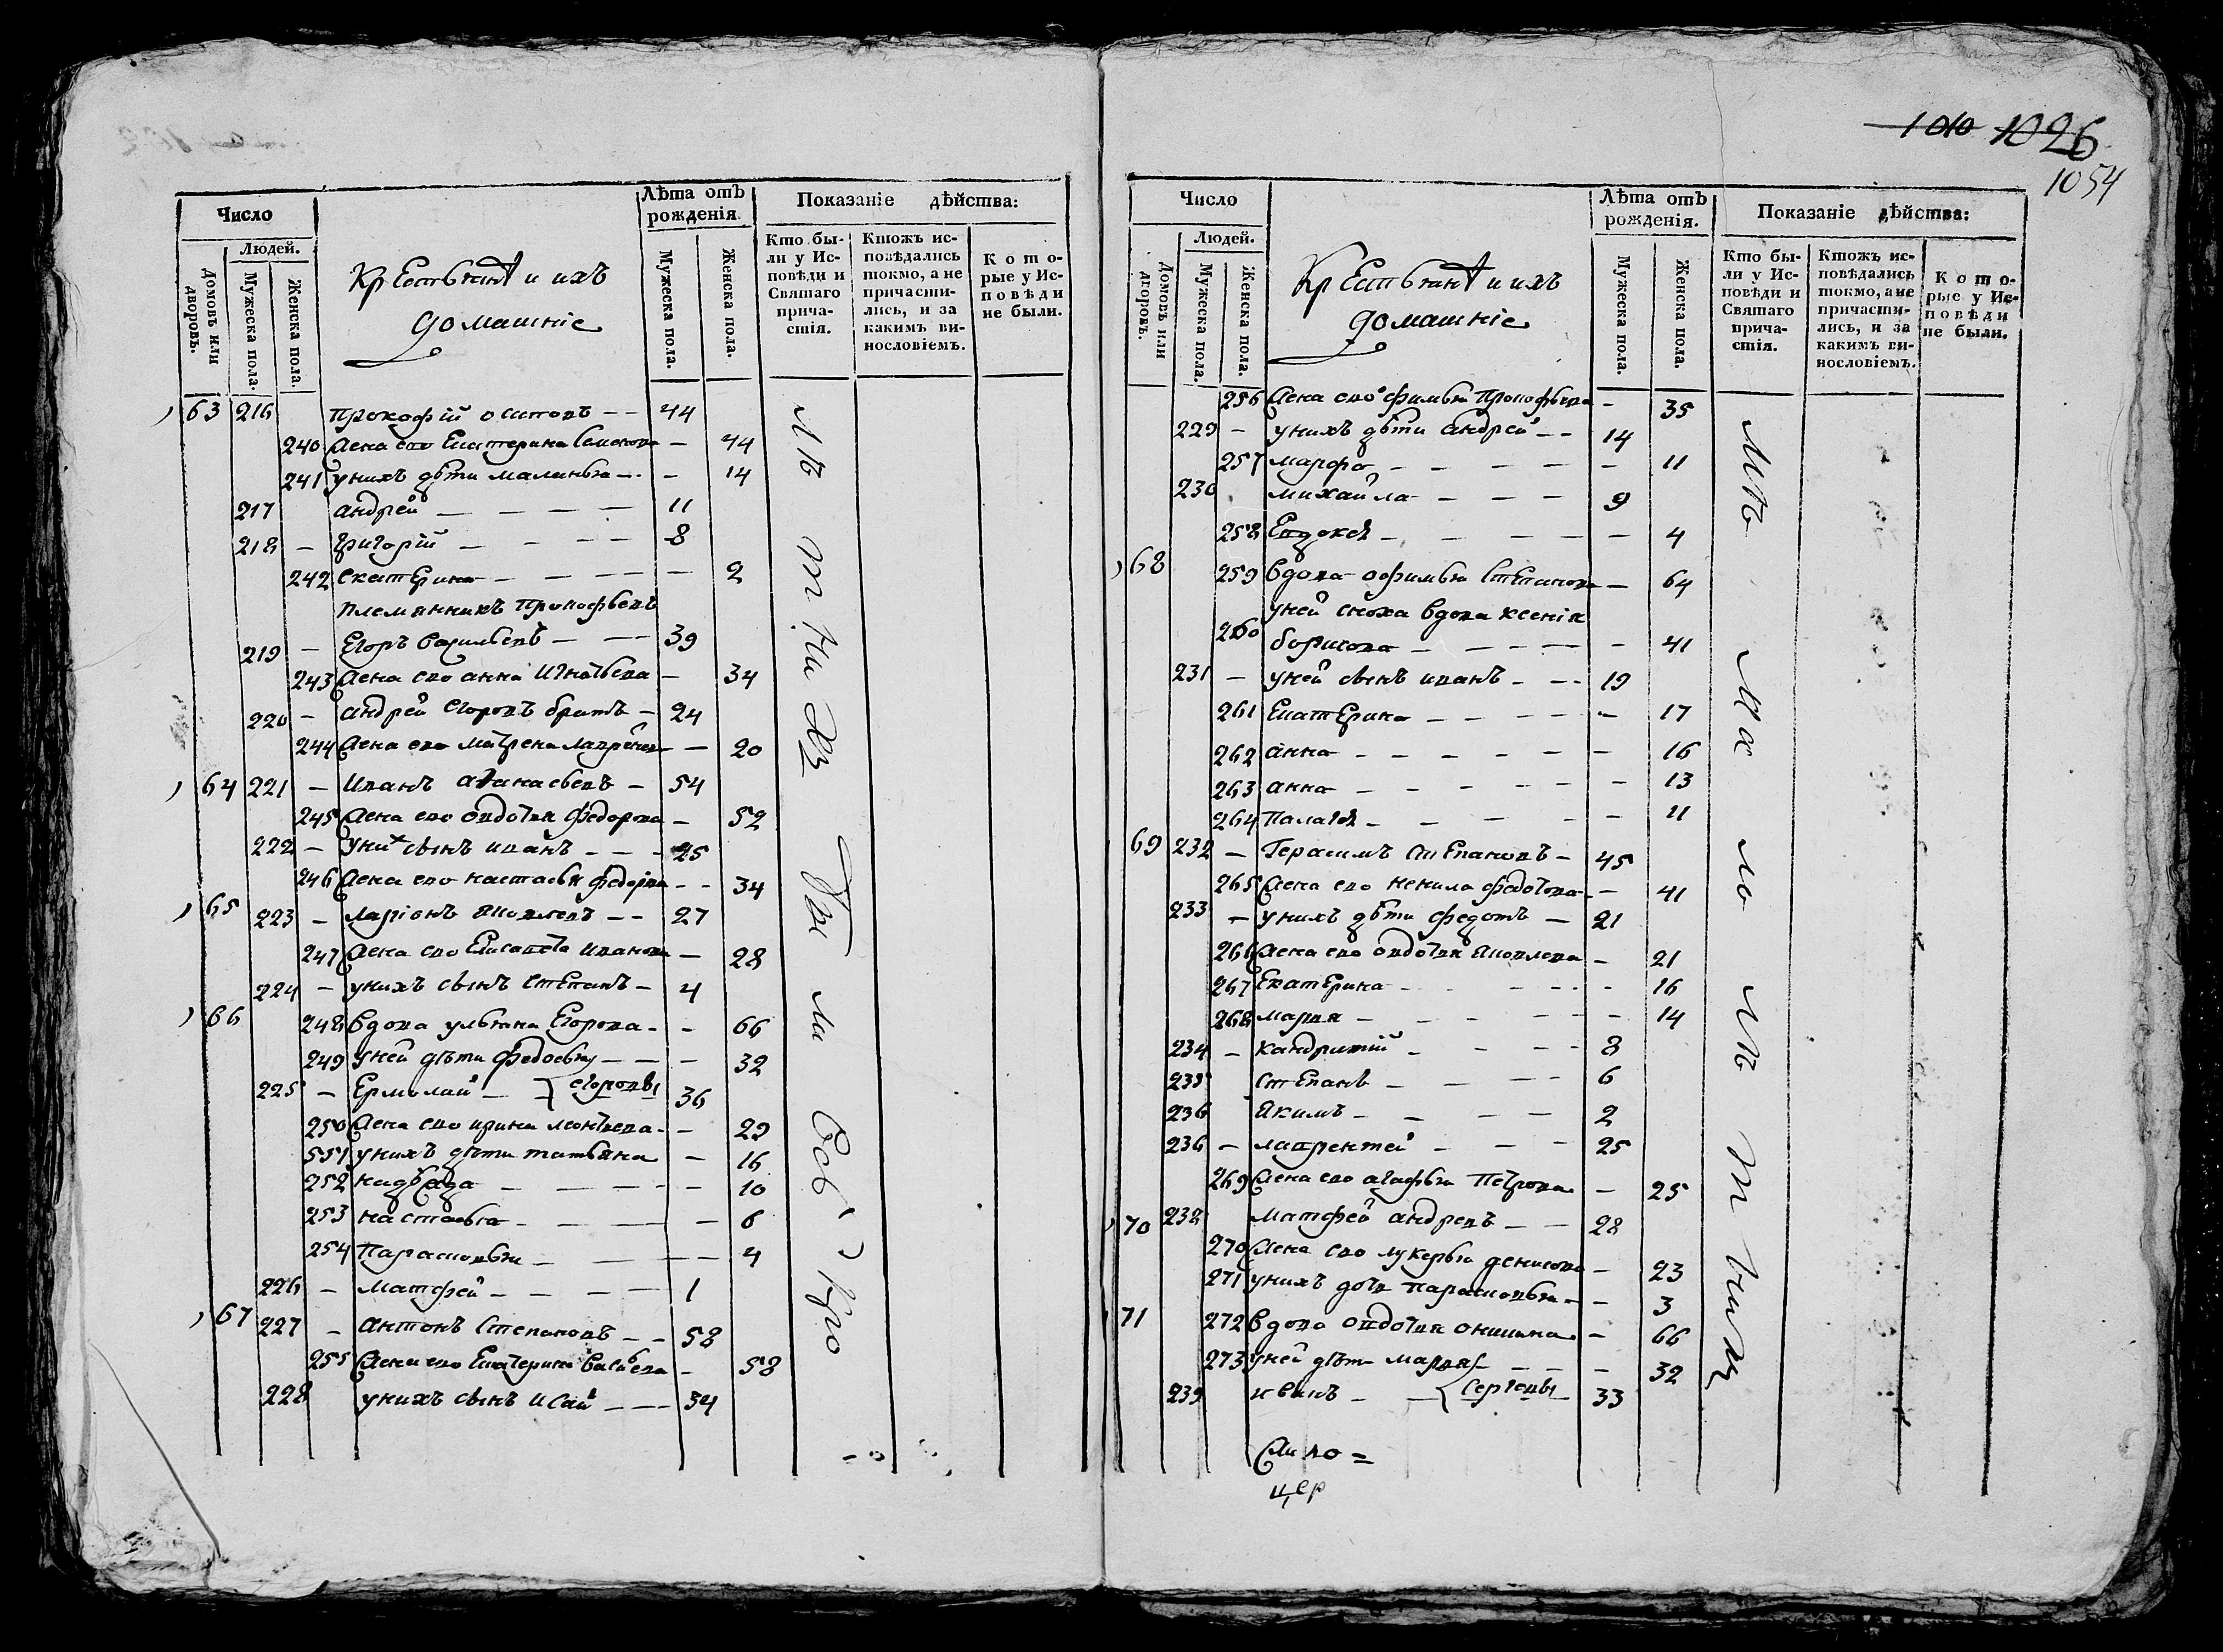 1010 1026
1054
Число
Лѣта отъ рожденія.
Показаніе дѣйства:
Людей.
Домовъ или дворовъ.
Мужеска пола.
Женска пола.
Крестьянѣ и ихъ
домашніе
Мужеска пола.
Женска пола.
Кто бы-
ли у Ис-
повѣди и
Святаго
прича-
стія.
Ктожъ ис-
повѣдались
токмо, а не
причасти-
лись, и за
какимъ ви-
нословіемъ.
Кото-
рые у Ис-
повѣди
не были.
63 216 Прокофій осиповъ 44
240 Жена ево Екатерина Семенова 44
241 у нихъ дѣти маланья 14
217 андрей 11
218 григорій 8
242 екатерина 2
племянникъ Прокофьевъ
219 Егоръ Васильевъ 39
243 Жена ево анна Игнатьева 34
220 андрей Егоровъ братъ 24
244 Жена ево Матрена 20
64 221 Иванъ аѳанасьевъ 54
245 Жена ево овдотья федорова 52
222 у них сынъ иванъ 25
246 Жена ево настасья федорова 34
65 223 ларіонъ яковлевъ 27
247 Жена ево Елисавета иванова 28
224 у нихъ сынъ степанъ 4
66 248 Вдова ульяна Егорова 66
249 у ней дѣти федосья 32
225 Ермолай егоровы 36
250 Жена ево ирина леонтьева 22
551 у нихъ дѣти татьяна 16
252 10
253 настасья 6
254 Парасковья 4
226 матфей 1
67 227 антонъ степановъ 58
255 Жена ево Екатерина Васильева 58
228 у нихъ сынъ исай 34
Число
Лѣта отъ рожденія.
Показаніе дѣйства:
Людей.
Домовъ или дворовъ.
Мужеска пола.
Женска пола.
Крестьянѣ и ихъ
домашніе
Мужеска пола.
Женска пола.
Кто бы-
ли у Ис-
повѣди и
Святаго
прича-
стія.
Ктожъ ис-
повѣдались
токмо, а не
причасти-
лись, и за
какимъ ви-
нословіемъ.
Кото-
рые у Ис-
повѣди
не были.
256 Жена ево фимья Прокофьева 35
229 у нихъ дѣти андрей 14
257 марфа 11
230 михайла 9
258 Евдокея 4
68 259 Вдова офимья степанова 64
у ней сноха вдова ксенія
260 борисова 41
231 у ней сынъ иванъ 19
261 Екатерина 17
262 анна 16
263 анна 13
264 Палагея 11
69 232 Герасимъ степановъ 45
265 Жена ево ненила федотова 41
233 у нихъ дѣти федотъ 21
266 Жена ево овдотья яковлева 21
267 Екатерина 16
268 марья 14
234 кандратій 8
235 степанъ 6
236 Якимъ 2
236 лаврентей 25
269 Жена ево агафья Петрова 25
70 232 матфей андревъ 28
270 Жена ево лукерья денисова 23
271 у нихъ дочь Парасковья 3
71 272 Вдова овдотья 66
273 у ней дѣти марья 32
239 иванъ Сергевы 33
цер